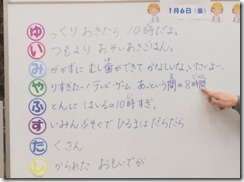 1月6日(金)
ゆっくりおきたら 10時だよ。
いつもより、おそいあさごはん。
みがかずに むし歯ができて かなしいな、いたいよー。
やりすぎた…! テレビ・ゲーム あっという間の8時間
ふとんに はいるの10時すぎ。
すいみんぶそくで ひるまはだらだら
たくさん
しかられた おもいでが